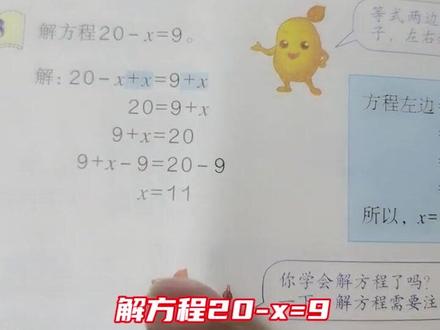 解方程20-x=9。
等式两边
子，左右
解：20-x+x=9+x
20=9+x
9+x=20
9+x-9=20-9
x=11
方程左边
所以，x=
你学会解方程了吗？
一下，解方程需要注
解方程20-x=9